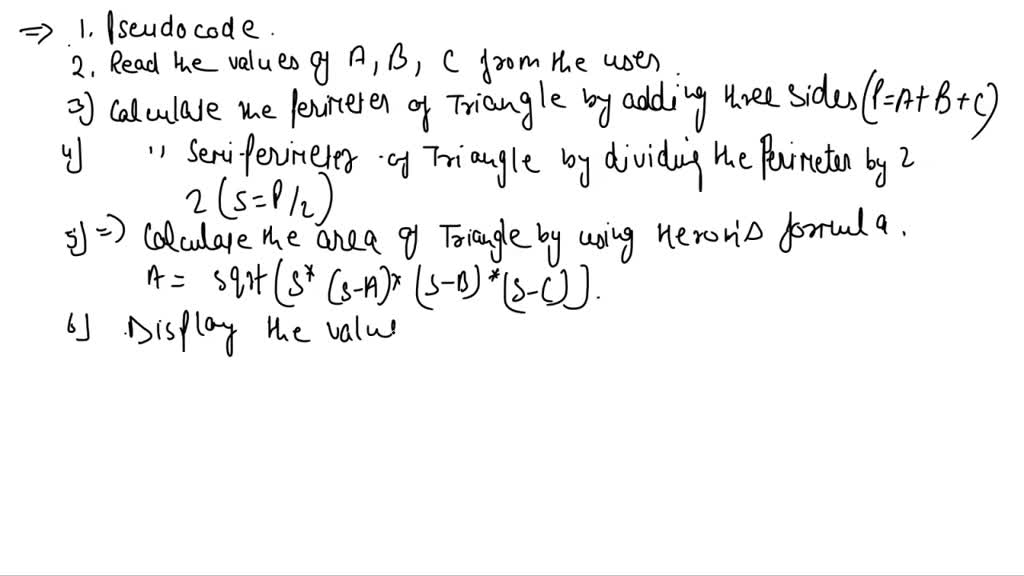 => 1. Pseudocode.
2. Read the values of A, B, C from the user.
3) Calculate the perimeter of Triangle by adding three sides (P=A+B+C)
4) " Semi-perimeter of Triangle by dividing the Perimeter by 2
2 (S=P/2)
5) => Calculate the area of Triangle by using Heron's formula.
A = sqrt(S* (S-A)* (S-B)* (S-C)).
6) Display the value